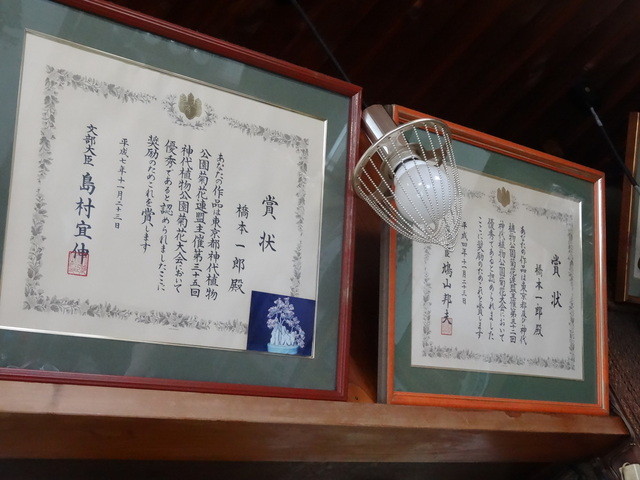 賞状
橋本一郎殿
あなたの作品は東京都神代植物
公園菊花連盟主催第三十五回
神代植物公園菊花大会において
優秀であると認められましたここに
奨励のためこれを賞します
平成七年十一月二十三日
文部大臣 島村宜伸
賞状
橋本一郎殿
あなたの作品は東京都及び神代
植物公園菊花連盟主催第三十二回
神代植物公園菊花大会において
優秀であると認められました
ここに奨励のためこれを賞します
平成四年十一月二十三日
臣 鳩山邦夫